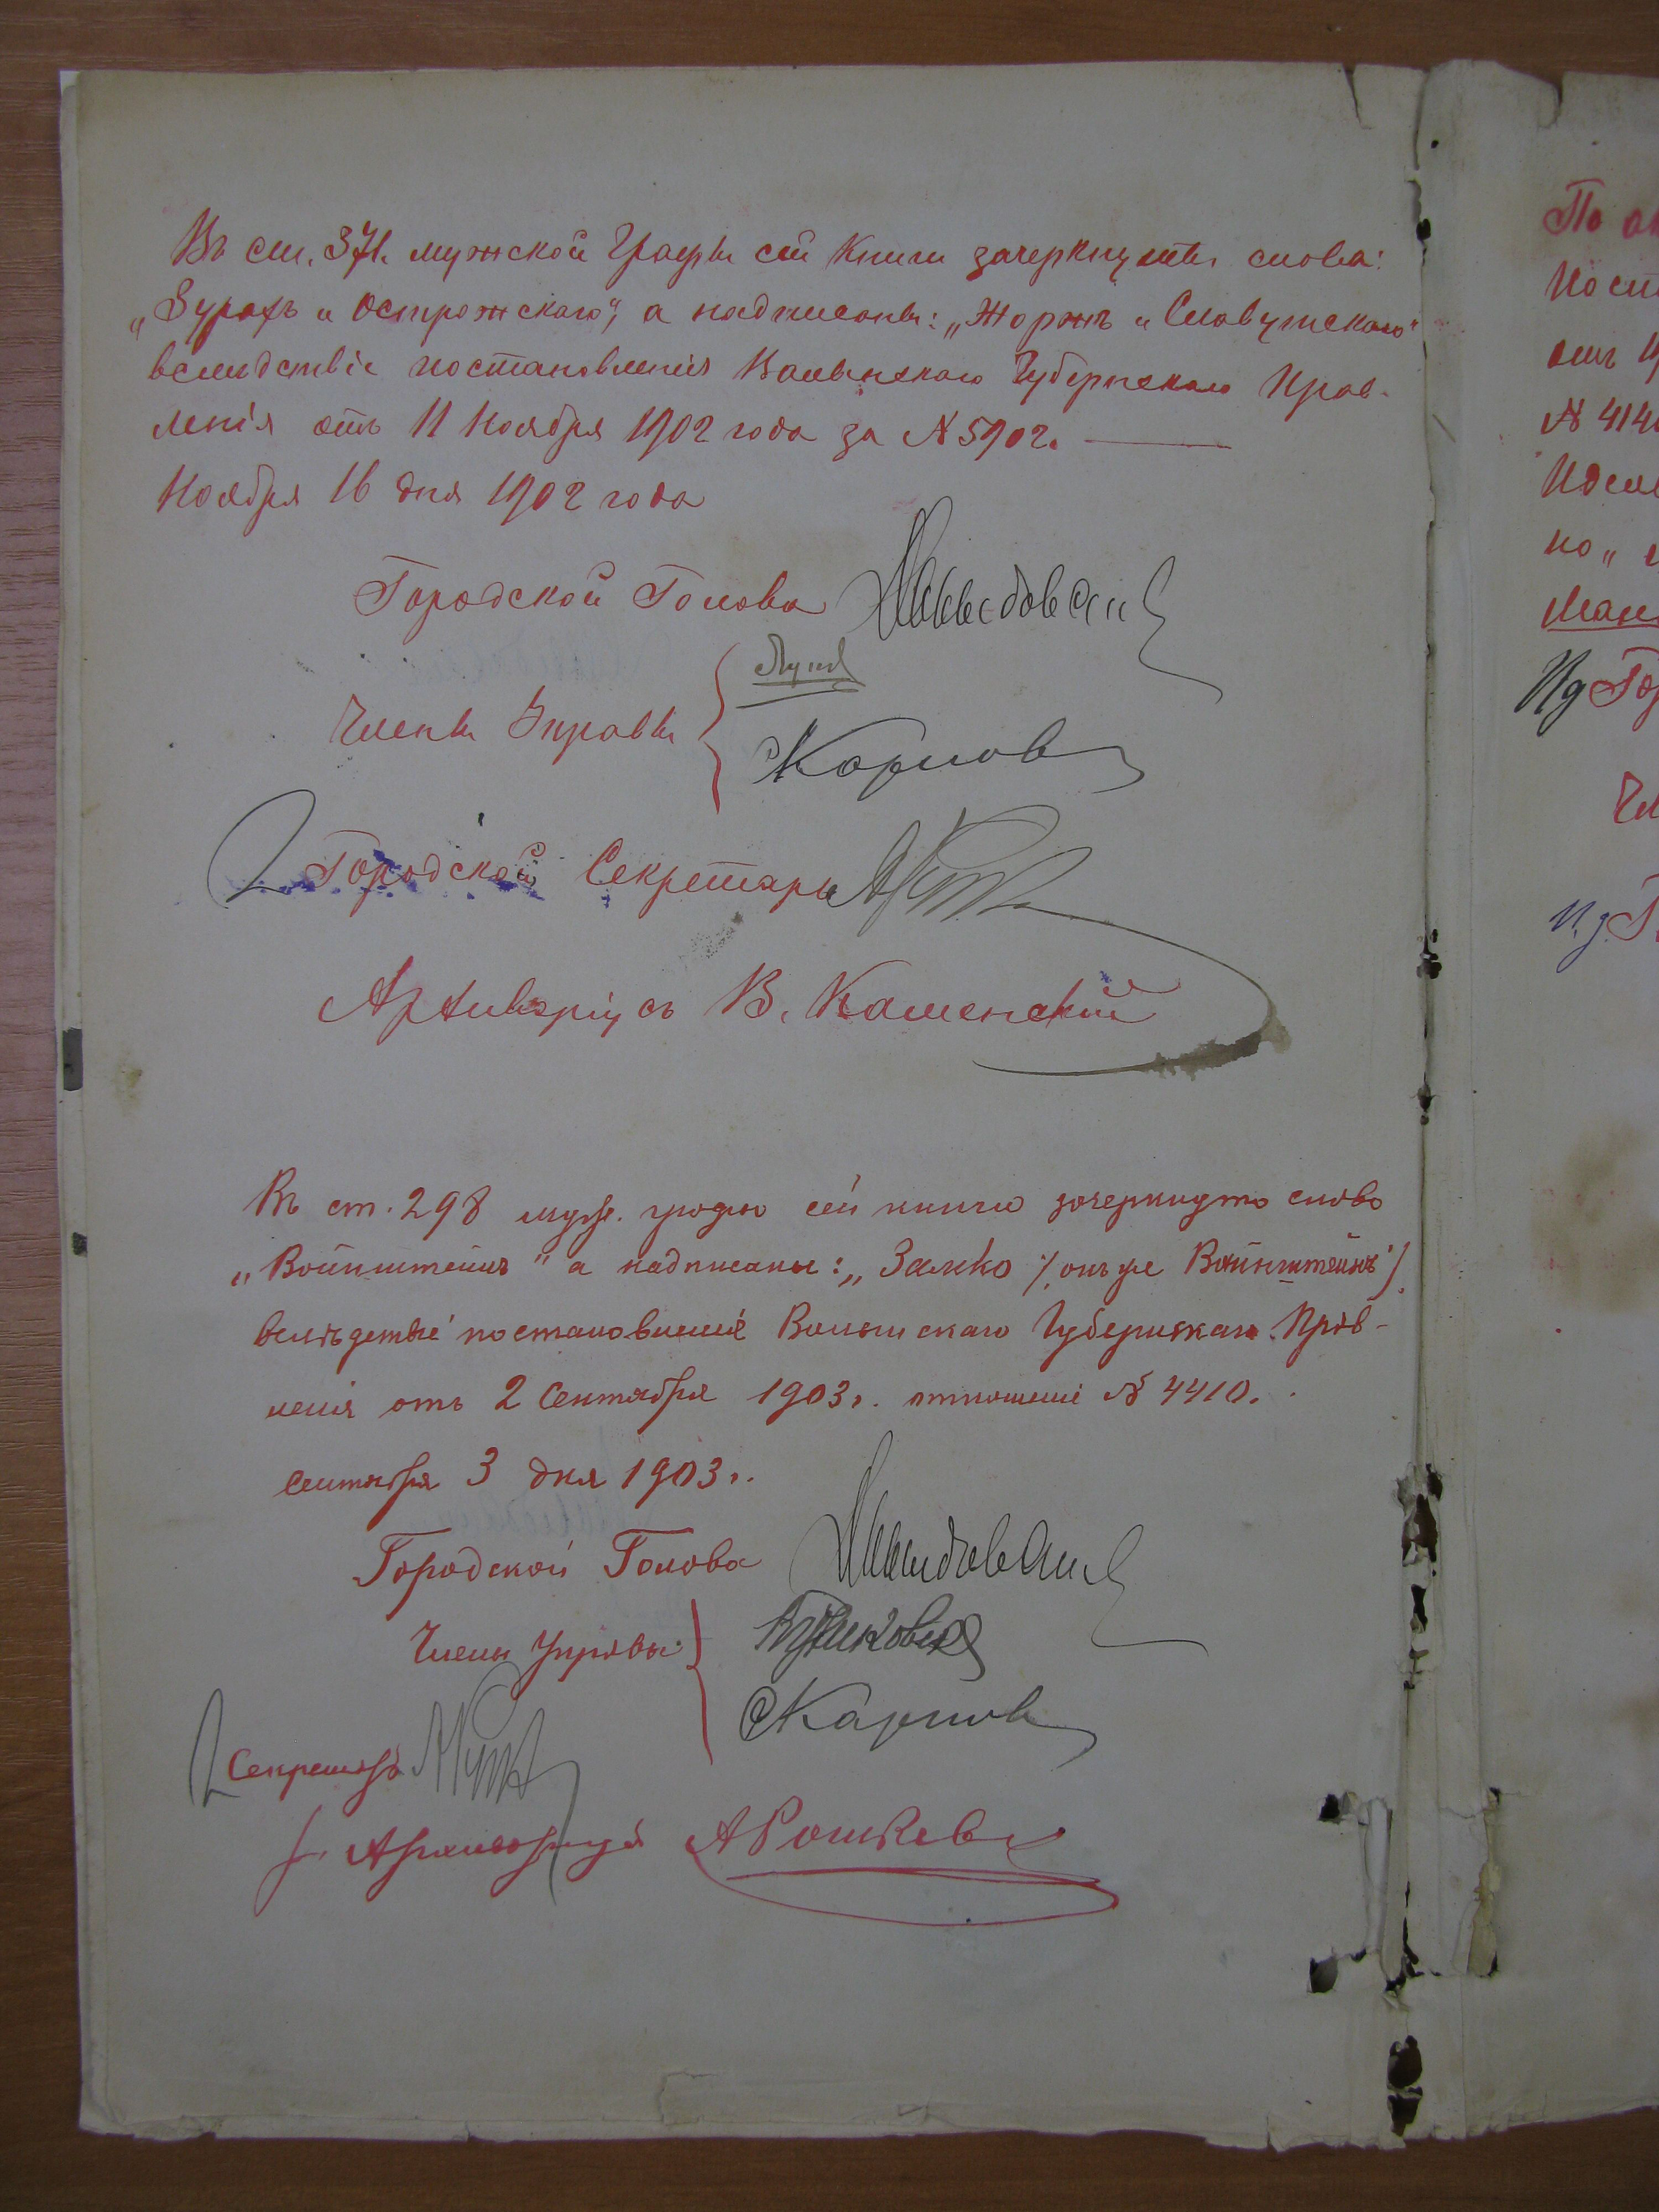 Въ ст. 371. мужской Графы сей Книги зачеркнуты слова:
„Зурахъ и Острожскаго“, а надписаны: „Жоржъ и Славутскаго“
вслѣдствіе постановленія Волынскаго Губернскаго Прав-
ленія отъ 11 Ноября 1902 года за №5902.
Ноября 16 дня 1902 года
Городской Голова
Члены Управы
Карпов
Городской Секретарь
Архиваріусъ В. Каменскій
Въ ст. 298 муж. графы сей книги зачеркнуто слово
„Войнштейнъ“ а надписаны: „Залко /онъ же Войнштейнъ/
вслѣдствіе постановленія Волынскаго Губернскаго Прав-
ленія отъ 2 Сентября 1903 г. отношеніе № 4410.
Сентября 3 дня 1903 г.
Городской Голова
Члены Управы
Карпов
Секретарь
Архиваріуса
По
№ 414
но „
Ид Гор
И.д. Г